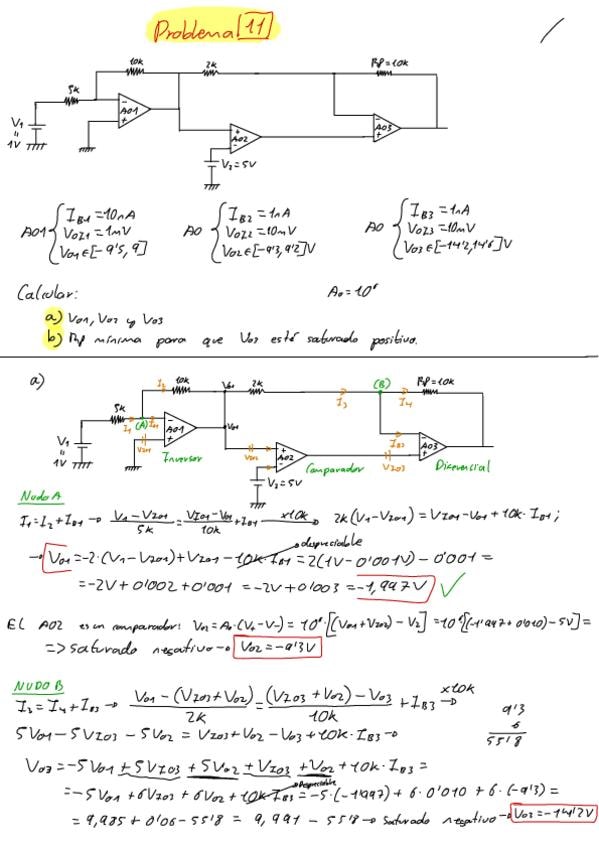 Problema 11
10k 2k RP=10k
5k
V1 = 1V
- + AO1
+ - AO2
- + AO3
V2=5V
AO1 { IB1=10nA
VOZ1=1mV
VO1∈[-9'5, 9]
AO { IB2=1nA
VOZ2=10mV
VO2∈[-9'3, 9'2]V
AO { IB3=1nA
VOZ3=10mV
VO3∈[-14'2, 14'6]V
Calcular:
a) VO1, VO2 y VO3
b) RP mínima para que VO3 esté saturado positivo.
a)
I2 10k VO1 2k I3 (B) I4 RP=10k
5k I1 (A) IB1
V1 = 1V VOZ1 - + AO1 VO1
Inversor
VOZ2 + - AO2
V2=5V
Comparador
IB3 VOZ3 - + AO3
Diferencial
Nudo A
I1=I2+IB1 → V1-VOZ1 / 5k = VOZ1-VO1 / 10k + IB1 x10k → 2k(V1-VOZ1) = VOZ1-VO1+10k·IB1;
despreciable
→ VO1=-2·(V1-VOZ1)+VOZ1-10k·IB1=2(1V-0'001V)-0'001=
=-2V+0'002+0'001=-2V+0'003=-1,997V ✓
EL AO2 es un comparador: VO2=Ao·(V+-V-)=10⁵·[(VO1+VOZ2)-V2]=10⁵[(-1'997+0'010)-5V]=
=> saturado negativo → VO2=-9'3V
NUDO B
I3=I4+IB3 → VO1-(VOZ3+VO2) / 2k = (VOZ3+VO2)-VO3 / 10k + IB3 x10k →
9'3
6
55'8
5VO1-5VOZ3-5VO2=VOZ3+VO2-VO3+10k·IB3→
VO3=-5VO1+5VOZ3+5VO2+VOZ3+VO2+10k·IB3=
Despreciable
=-5VO1+6VOZ3+6VO2+10k IB3=-5·(-1'997)+6·0'010+6·(-9'3)=
=9,985+0'06-55'8=9,991-55'8→saturado negativo→VO3=-14'2V